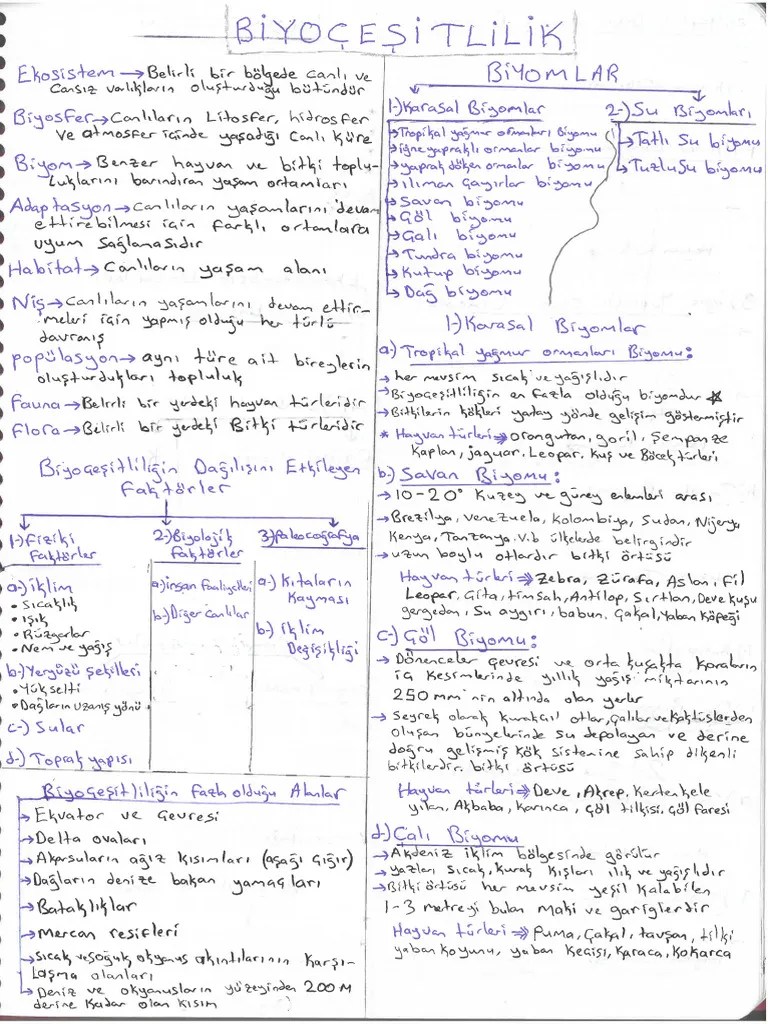 BİYOÇEŞİTLİLİK
Ekosistem → Belirli bir bölgede canlı ve
Cansız varlıkların oluşturduğu bütündür
Biyosfer → Canlıların Litosfer, hidrosfer
ve atmosfer içinde yaşadığı Canlı Küre
Biyom → Benzer hayvan ve bitki toplu-
luklarını barındıran yaşam ortamları
Adaptasyon → Canlıların yaşamlarını devam
ettirebilmesi için farklı ortamlara
uyum sağlamasıdır
Habitat → Canlıların yaşam alanı
Niş → Canlıların yaşamlarını devam ettir-
meleri için yapmış olduğu her türlü
davranış
popülasyon → aynı türe ait bireylerin
oluşturdukları topluluk
Fauna → Belirli bir yerdeki hayvan türleridir
Flora → Belirli bir yerdeki Bitki türleridir
Biyoçeşitliliğin Dağılışını Etkileyen
faktörler
1-) Fiziki
faktörler
a-) iklim
• Sıcaklık
• ışık
• Rüzgarlar
• Nem ve yağış
b-) Yeryüzü şekilleri
• Yükselti
• Dağların uzanış yönü
c-) Sular
d-) Toprak yapısı
2-) Biyolojik
faktörler
a-) insan faaliyetleri
b-) Diğer canlılar
3-) Paleocoğrafya
a-) Kıtaların
Kayması
b-) iklim
Değişikliği
Biyoçeşitliliğin fazla olduğu Alanlar
→ Ekvator ve Çevresi
→ Delta ovaları
→ Akarsuların ağız kısımları (aşağı çığır)
→ Dağların denize bakan yamaçları
→ Bataklıklar
→ Mercan resifleri
→ sıcak ve soğuk okyanus akıntılarının karşı-
laşma alanları
→ Deniz ve okyanusların yüzeyinden 200 M
derine kadar olan kısım
BİYOMLAR
1-) Karasal Biyomlar
→ Tropikal yağmur ormanları Biyomu
→ iğne yapraklı ormanlar biyomu
→ yaprak döken ormanlar biyomu
→ ılıman Çayırlar biyomu
→ Savan biyomu
→ Çöl biyomu
→ Çalı biyomu
→ Tundra biyomu
→ Kutup biyomu
→ Dağ biyomu
2-) Su Biyomları
→ Tatlı Su biyomu
→ Tuzlu Su biyomu
1-) Karasal Biyomlar
a-) Tropikal yağmur ormanları Biyomu:
→ her mevsim sıcak ve yağışlıdır
→ Biyoçeşitliliğin en fazla olduğu biyomdur ★
→ Bitkilerin kökleri yatay yönde gelişim göstermiştir
* Hayvan türleri ⇒ orongutan, goril, Şempanze
Kaplan, jaguar, Leopar, Kuş ve Böcek türleri
b-) Savan Biyomu:
→ 10-20° Kuzey ve güney enlemleri arası
→ Brezilya, venezuela, kolombiya, Sudan, Nijerya
Kenya, Tanzanya v.b ülkelerde belirgindir
→ uzun boylu otlardır bitki örtüsü
Hayvan türleri ⇒ Zebra, Zürafa, Aslan, Fil
Leopar, Çita, timsah, Antilop, Sırtlan, Deve kuşu
gergedan, Su aygırı, babun, Çakal, Yaban Köpeği
c-) Çöl Biyomu:
→ Dönenceler çevresi ve orta kuşakta karaların
iç kesimlerinde yıllık yağış miktarının
250 mm'nin altında olan yerler
→ Seyrek olarak kurakçıl otlar, çalılar ve kaktüslerden
oluşan bünyelerinde su depolayan ve derine
doğru gelişmiş kök sistemine sahip dikenli
bitkilerdir. bitki örtüsü
Hayvan türleri ⇒ Deve, Akrep, Kertenkele
yılan, Akbaba, Karınca, Çöl tilkisi, Çöl faresi
d-) Çalı Biyomu
→ Akdeniz iklim bölgesinde görülür
→ yazları Sıcak, kurak kışları ılık ve yağışlıdır
→ Bitki örtüsü her mevsim yeşil kalabilen
1-3 metreyi bulan Maki ve gariglerdir
Hayvan türleri ⇒ Puma, Çakal, tavşan, tilki
yaban koyunu, yaban Keçisi, Karaca, Kokarca